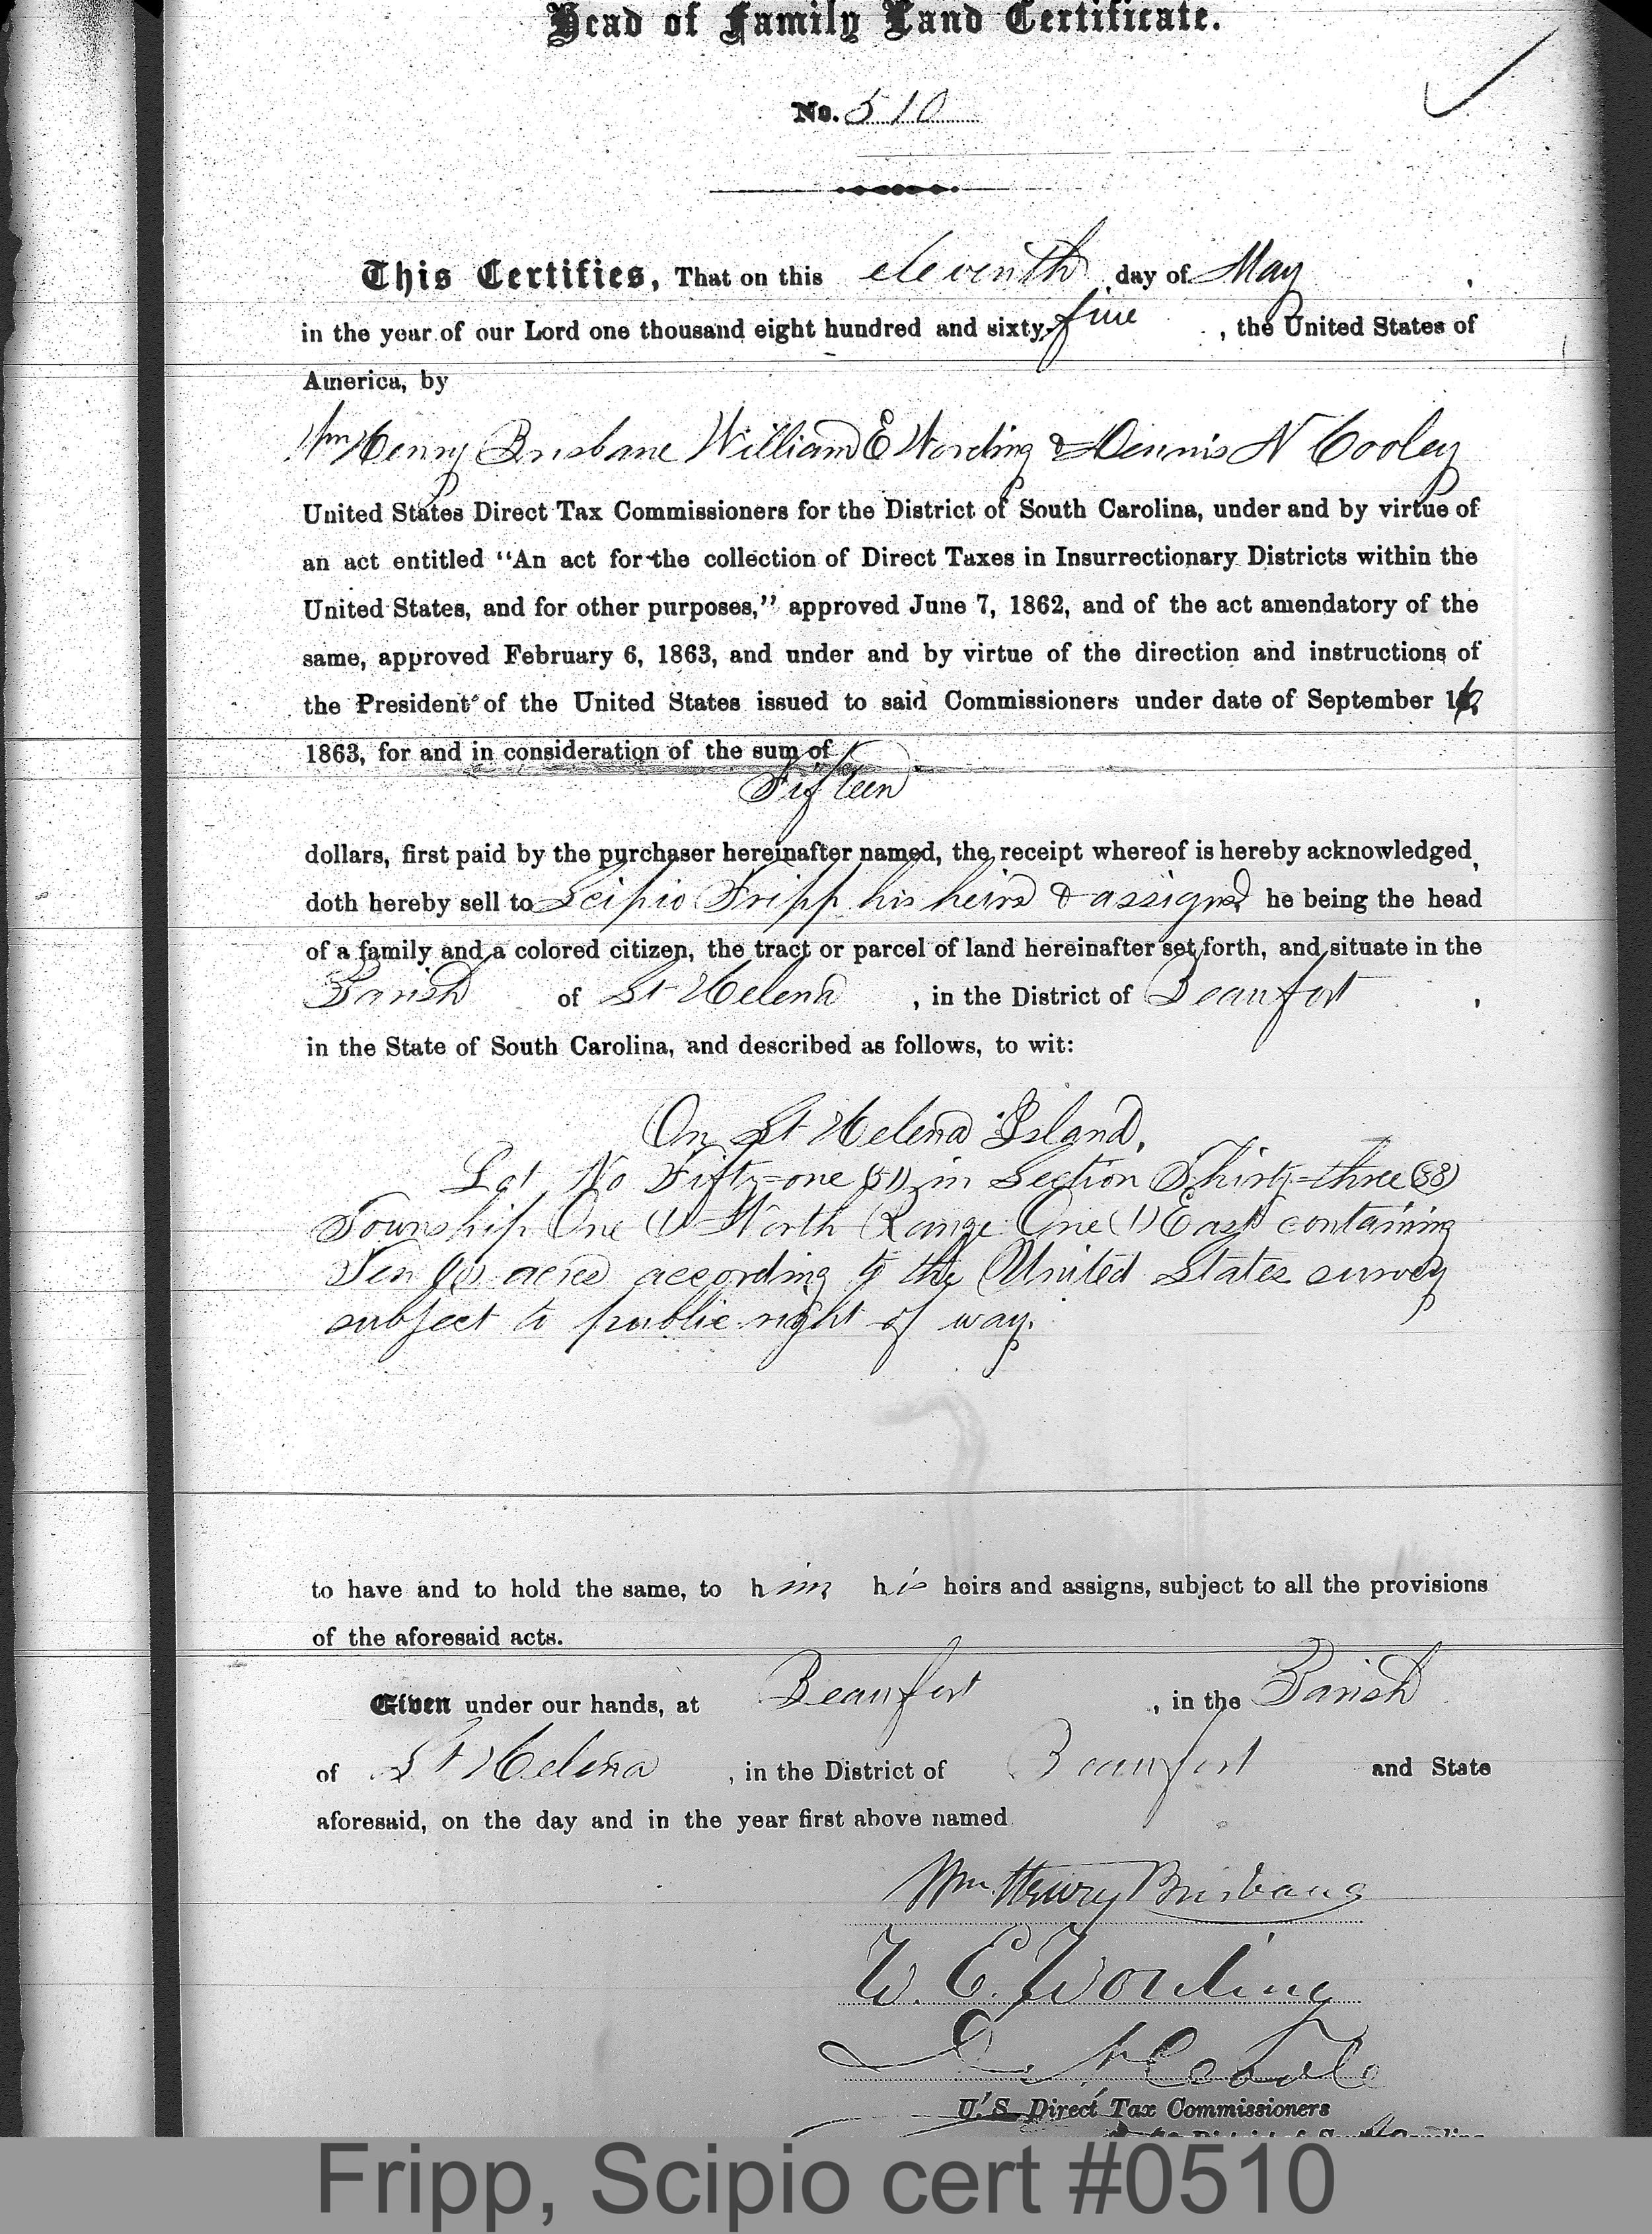 Head of Family Land Certificate.
No. 510
This Certifies, That on this eleventh day of May,
in the year of our Lord one thousand eight hundred and sixty-five, the United States of
America, by
Wm Henry Brisbane William E Wording & Dennis N Cooley
United States Direct Tax Commissioners for the District of South Carolina, under and by virtue of
an act entitled "An act for the collection of Direct Taxes in Insurrectionary Districts within the
United States, and for other purposes," approved June 7, 1862, and of the act amendatory of the
same, approved February 6, 1863, and under and by virtue of the direction and instructions of
the President of the United States issued to said Commissioners under date of September 16,
1863, for and in consideration of the sum of
Fifteen
dollars, first paid by the purchaser hereinafter named, the receipt whereof is hereby acknowledged,
doth hereby sell to Scipio Fripp his heirs & assigns, he being the head
of a family and a colored citizen, the tract or parcel of land hereinafter set forth, and situate in the
Parish of St Helena, in the District of Beaufort,
in the State of South Carolina, and described as follows, to wit:
On St Helena Island,
Lot No Fifty-one (51) in Section Thirty-three (33)
Township One (1) North Range One (1) East containing
Ten (10) acres according to the United States survey
subject to public right of way.
to have and to hold the same, to him his heirs and assigns, subject to all the provisions
of the aforesaid acts.
Given under our hands, at Beaufort, in the Parish
of St Helena, in the District of Beaufort and State
aforesaid, on the day and in the year first above named.
Wm. Henry Brisbane
W. E. Wording
D. N. Cooley
U. S. Direct Tax Commissioners
District of South Carolina
Fripp, Scipio cert #0510